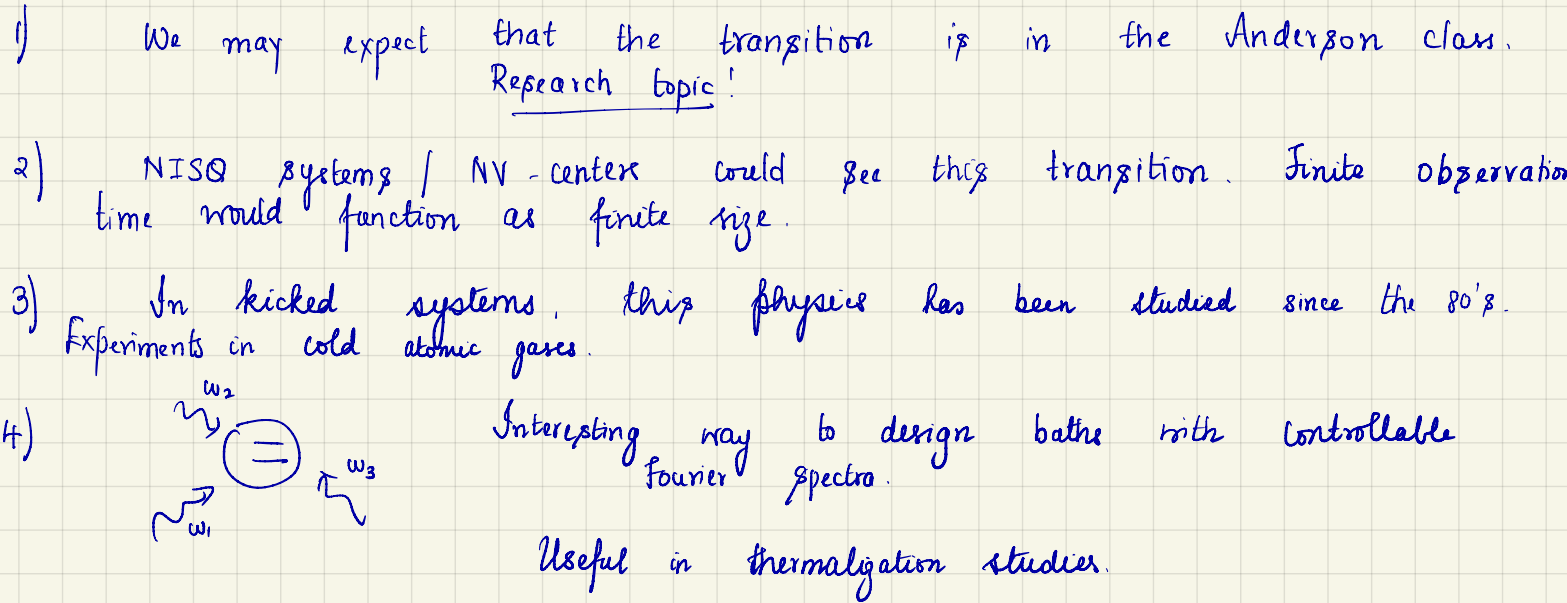 1) We may expect that the transition is in the Anderson class.
Research topic!
2) NISQ systems / NV-centers could see this transition. Finite observation
time would function as finite size.
3) In kicked systems, this physics has been studied since the 80's.
Experiments in cold atomic gases.
ω2
4) Interesting way to design baths with controllable
ω3 Fourier spectra.
ω1
Useful in thermalization studies.